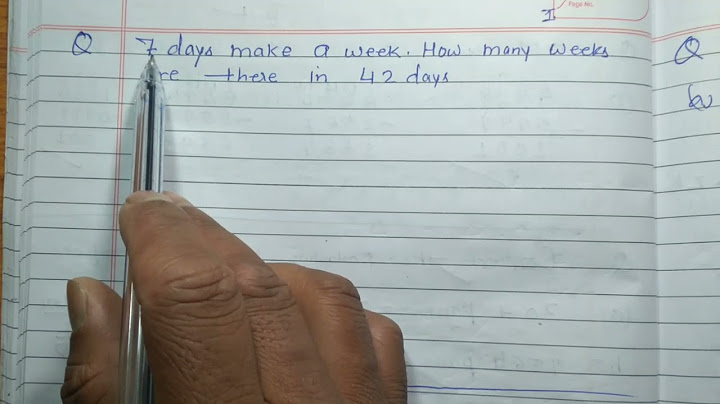 Page No.
Q 7 days make a week. How many weeks
re there in 42 days
Q